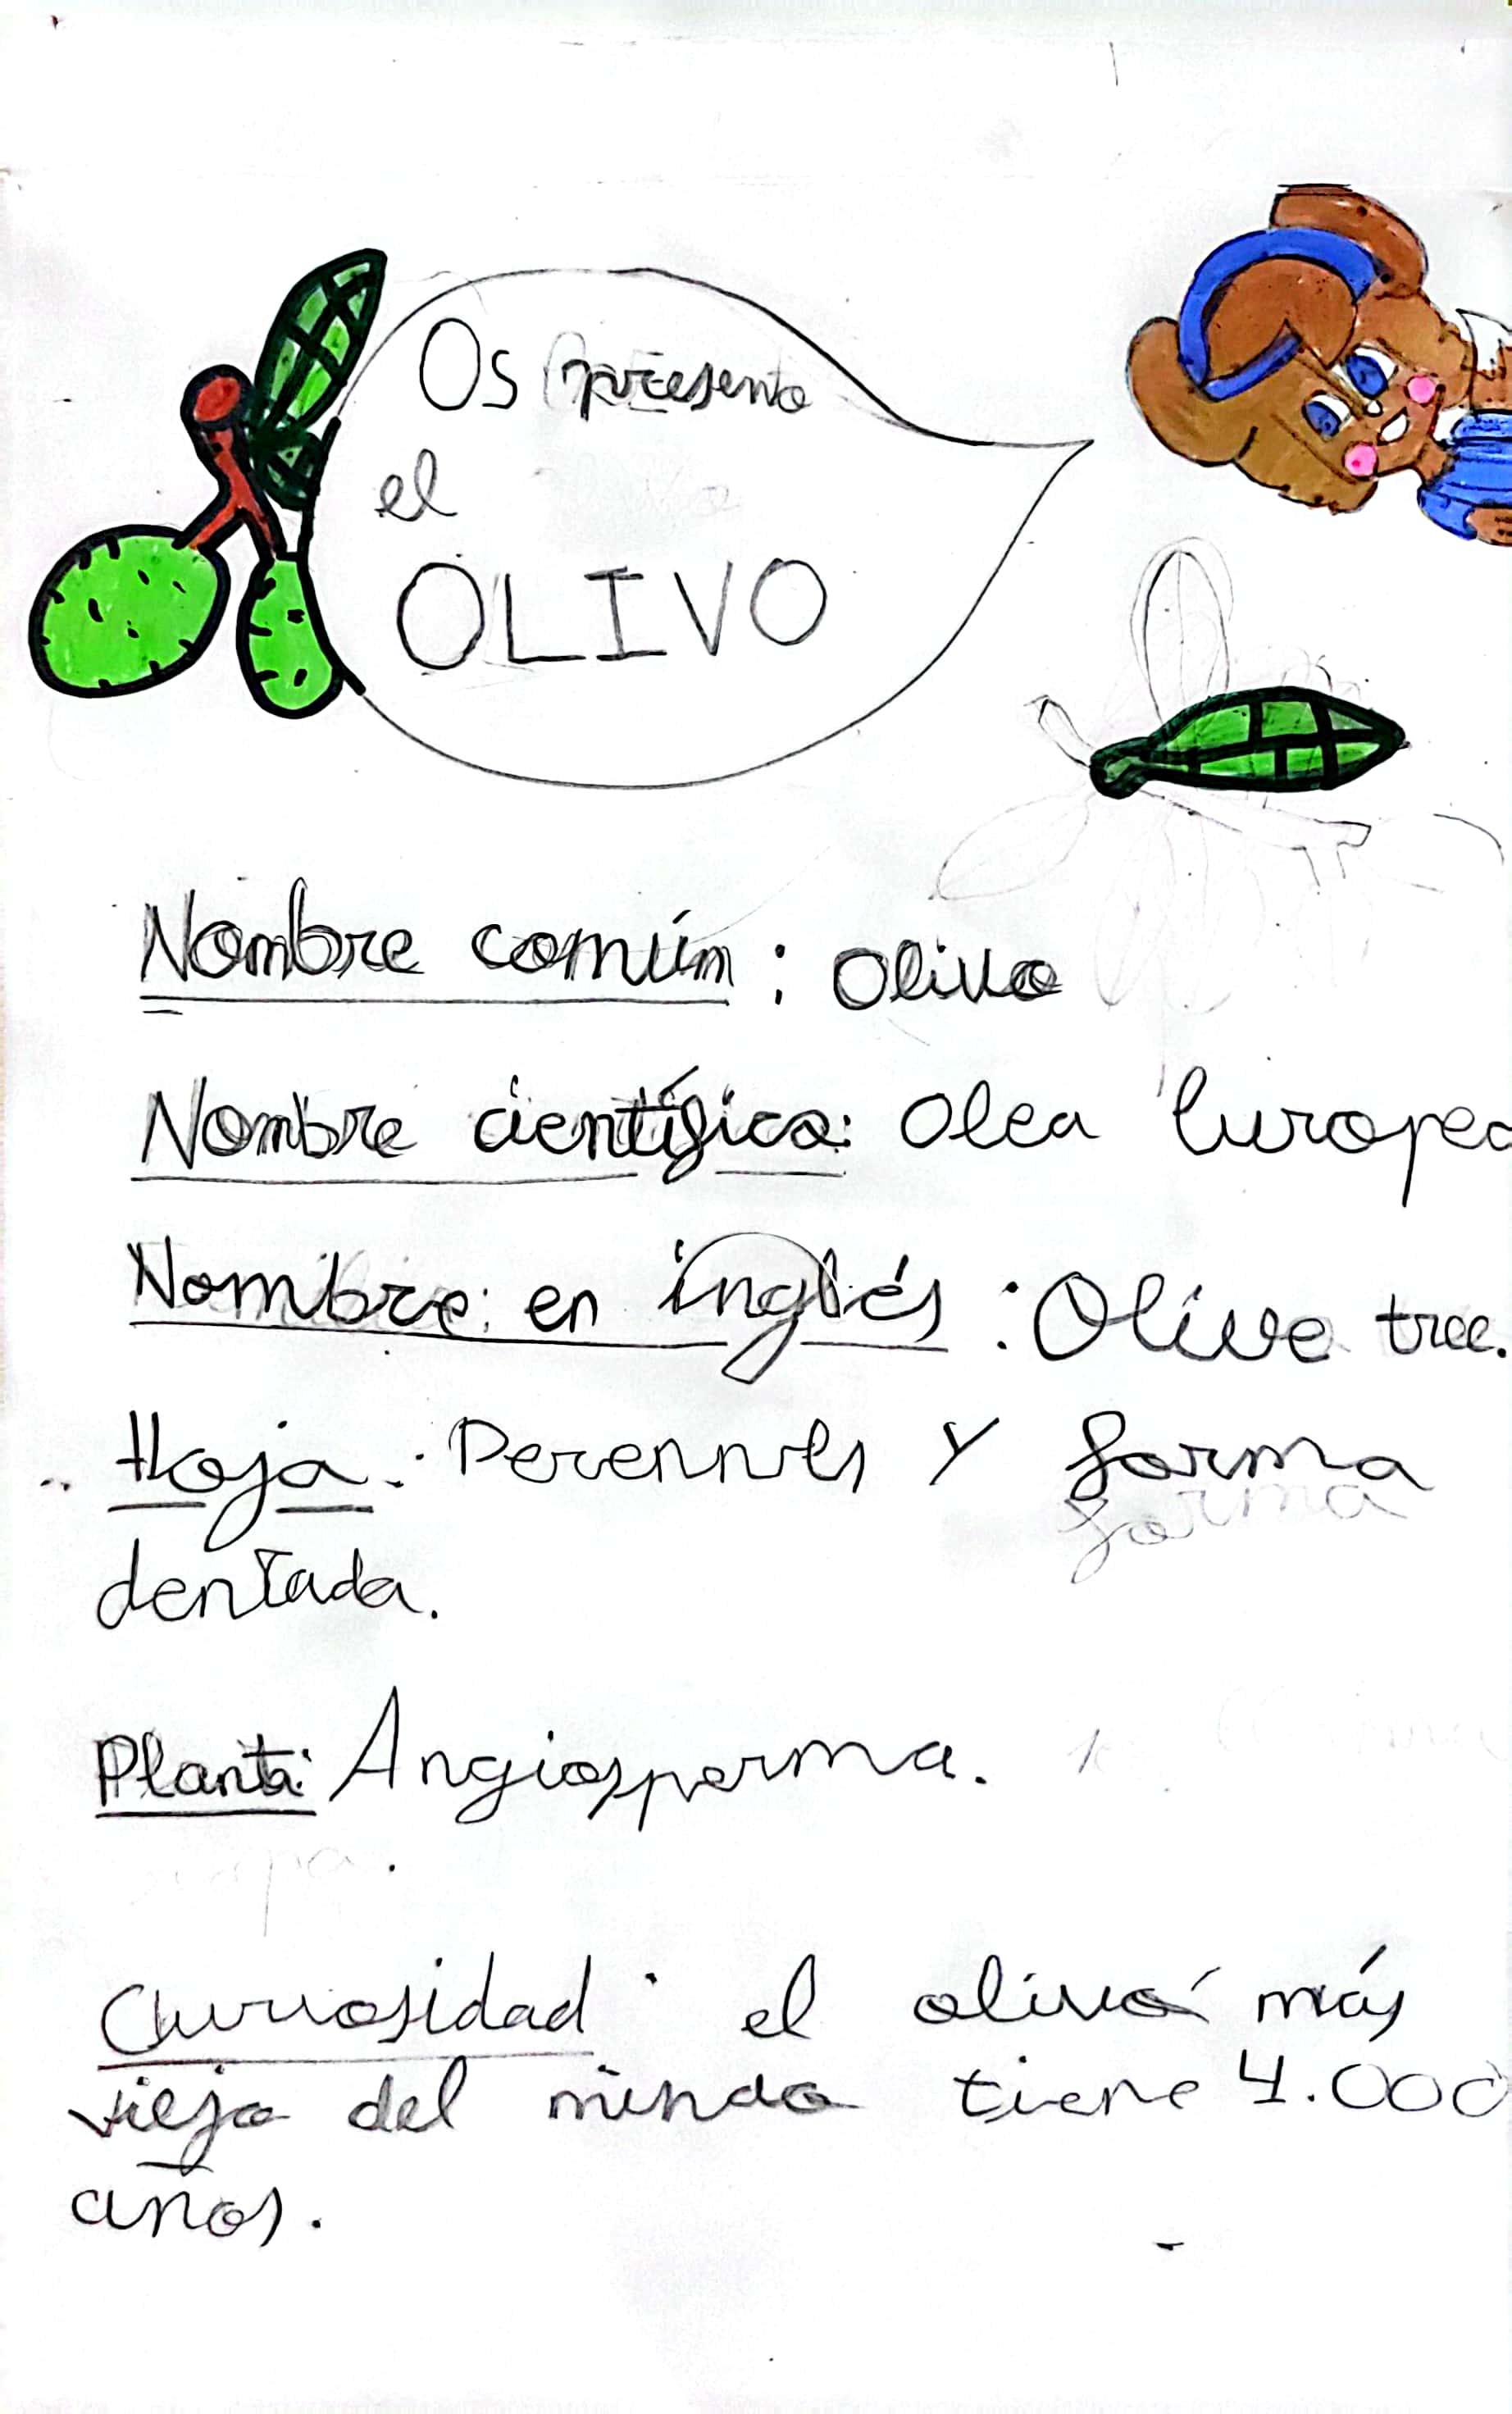 Os presento
el
OLIVO
Nombre común: Olivo
Nombre científico: Olea Europea
Nombre: en inglés: Olive tree.
Hoja: Perennes y forma
forma
dentada.
Planta: Angiosperma.
Curiosidad: el olivo más
viejo del mundo tiene 4.000
años.